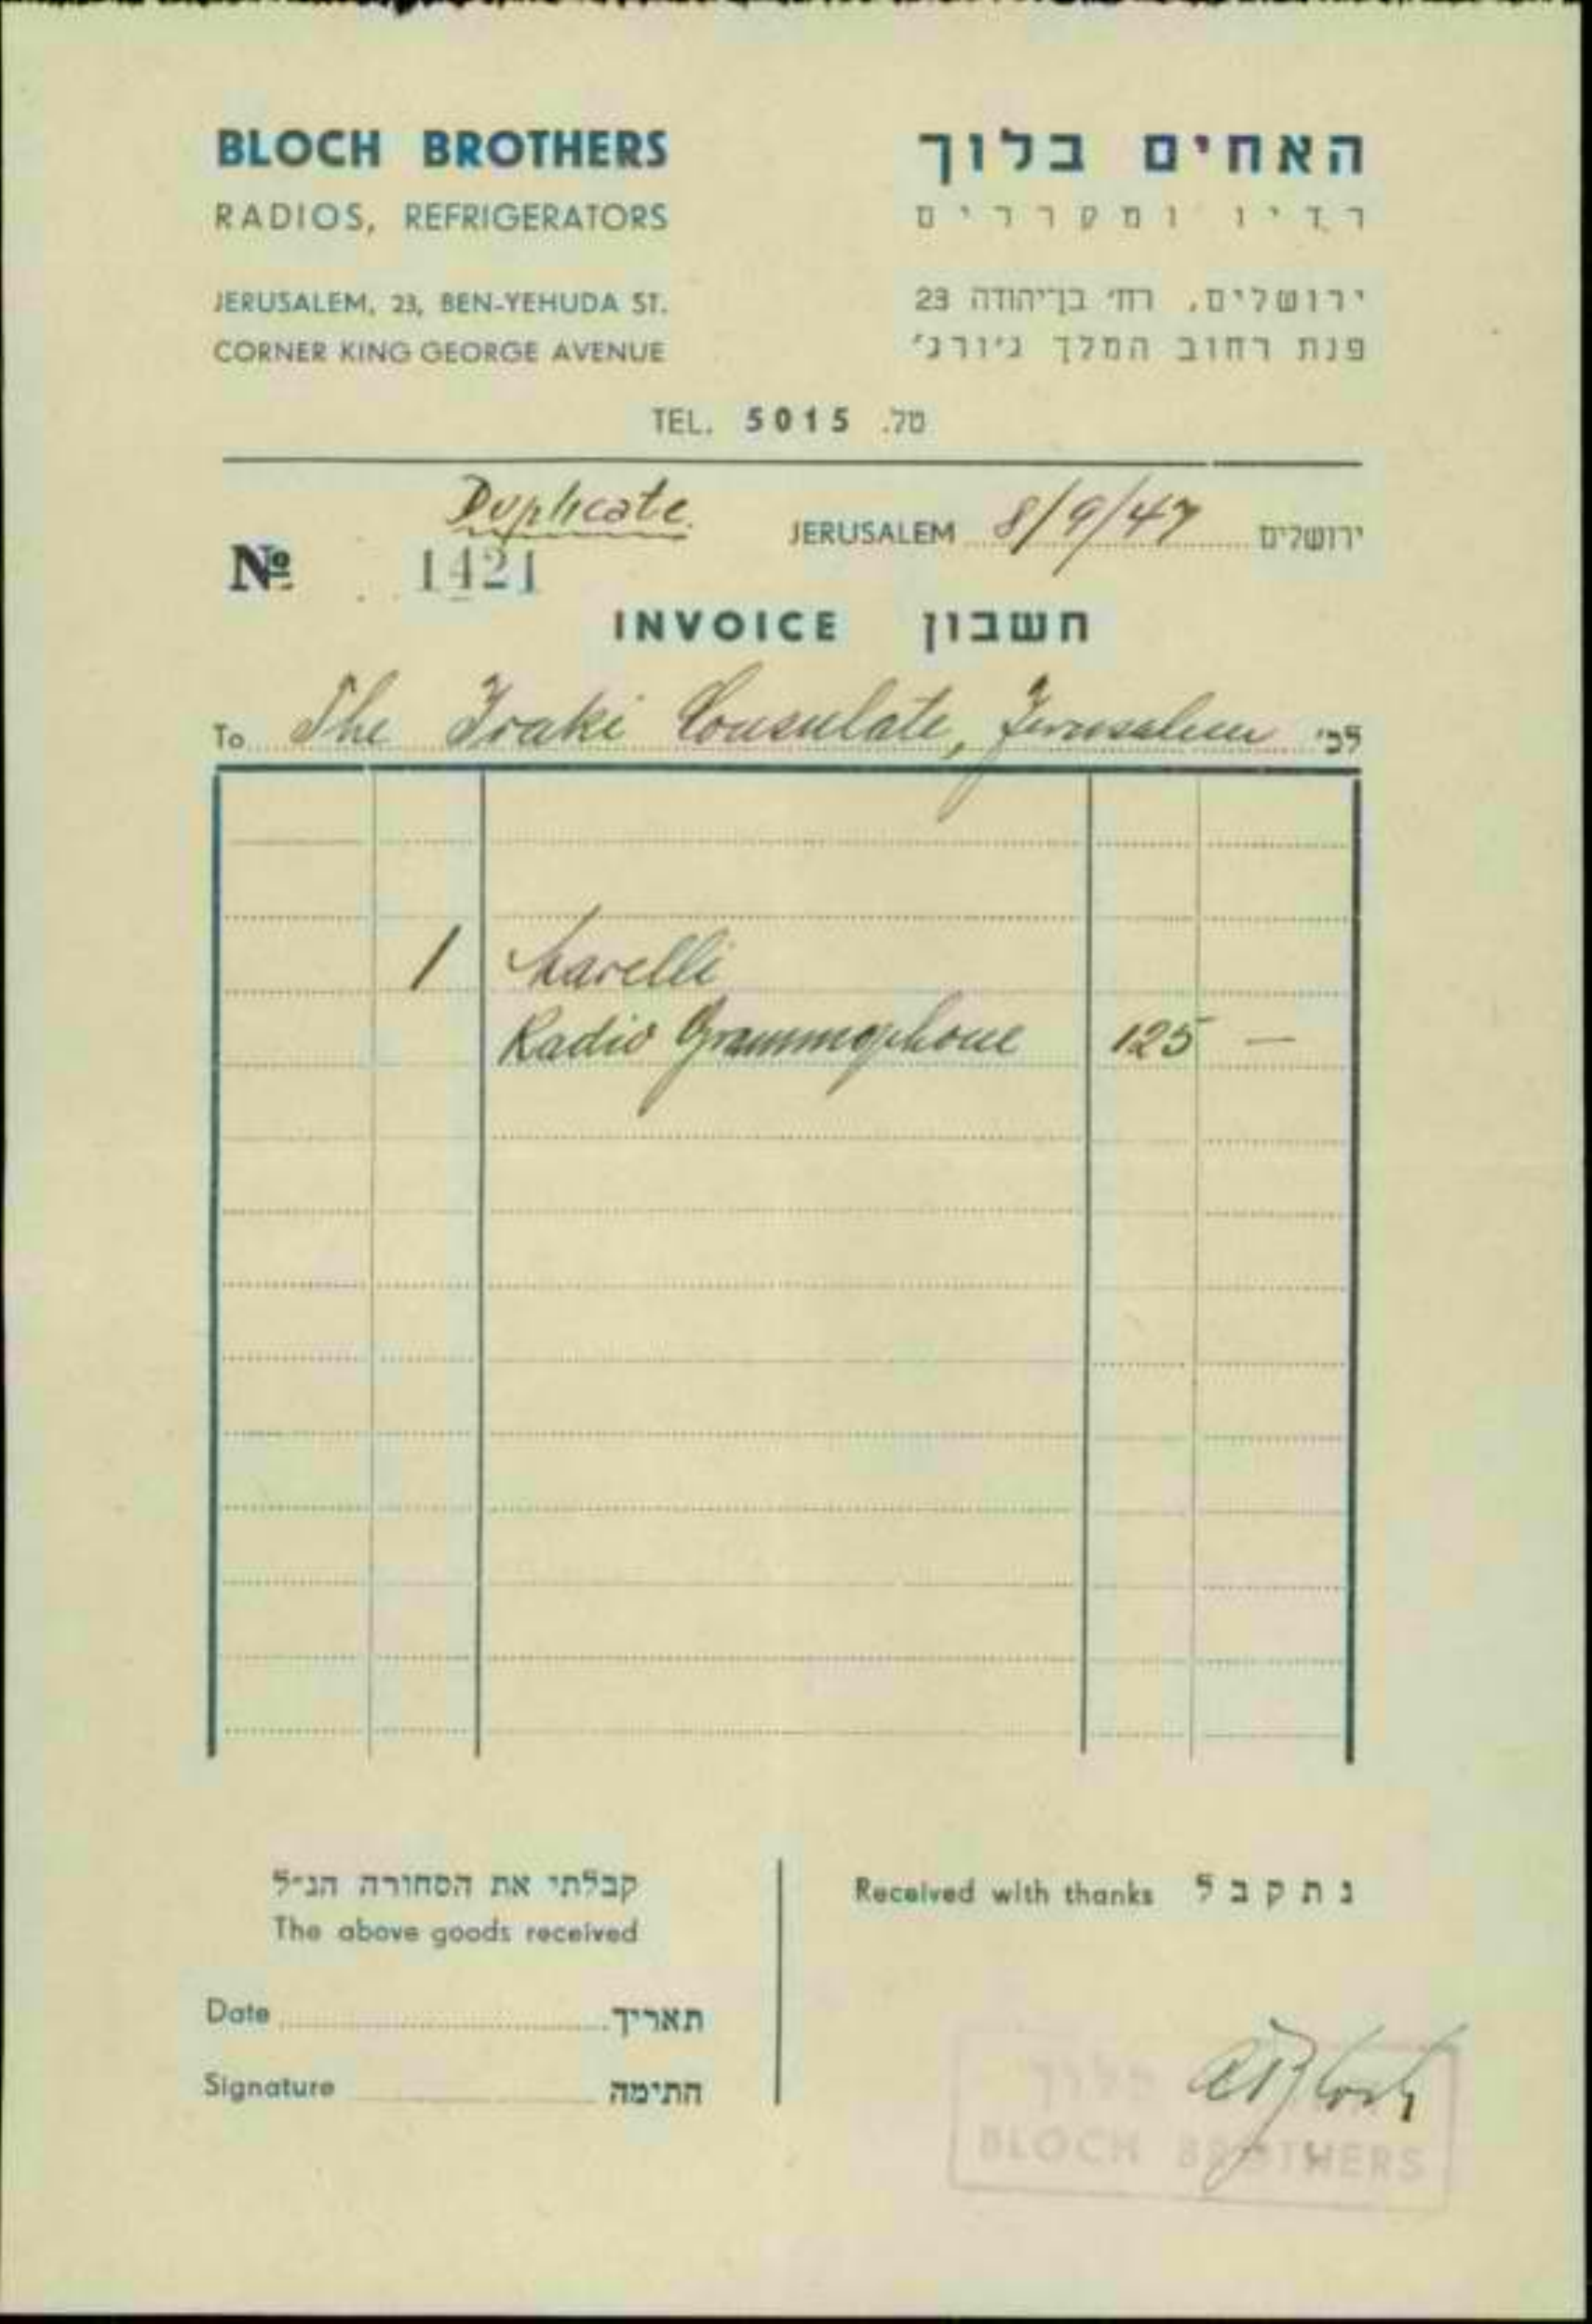 BLOCH BROTHERS
RADIOS, REFRIGERATORS
JERUSALEM, 23, BEN-YEHUDA ST.
CORNER KING GEORGE AVENUE
האחים בלוך
רדיו ומקררים
ירושלים, רח׳ בן־יהודה 23
פנת רחוב המלך ג׳ורג׳
TEL. 5015 טל.
Duplicate.
JERUSALEM 8/9/47 ירושלים
№ 1421
INVOICE חשבון
To The Iraki Consulate, Jerusalem לכ׳
1 Marelli
Radio Grammophone 125 —
קבלתי את הסחורה הנ״ל
The above goods received
Date תאריך
Signature חתימה
Received with thanks נתקבל
בלוך
BLOCH BROTHERS